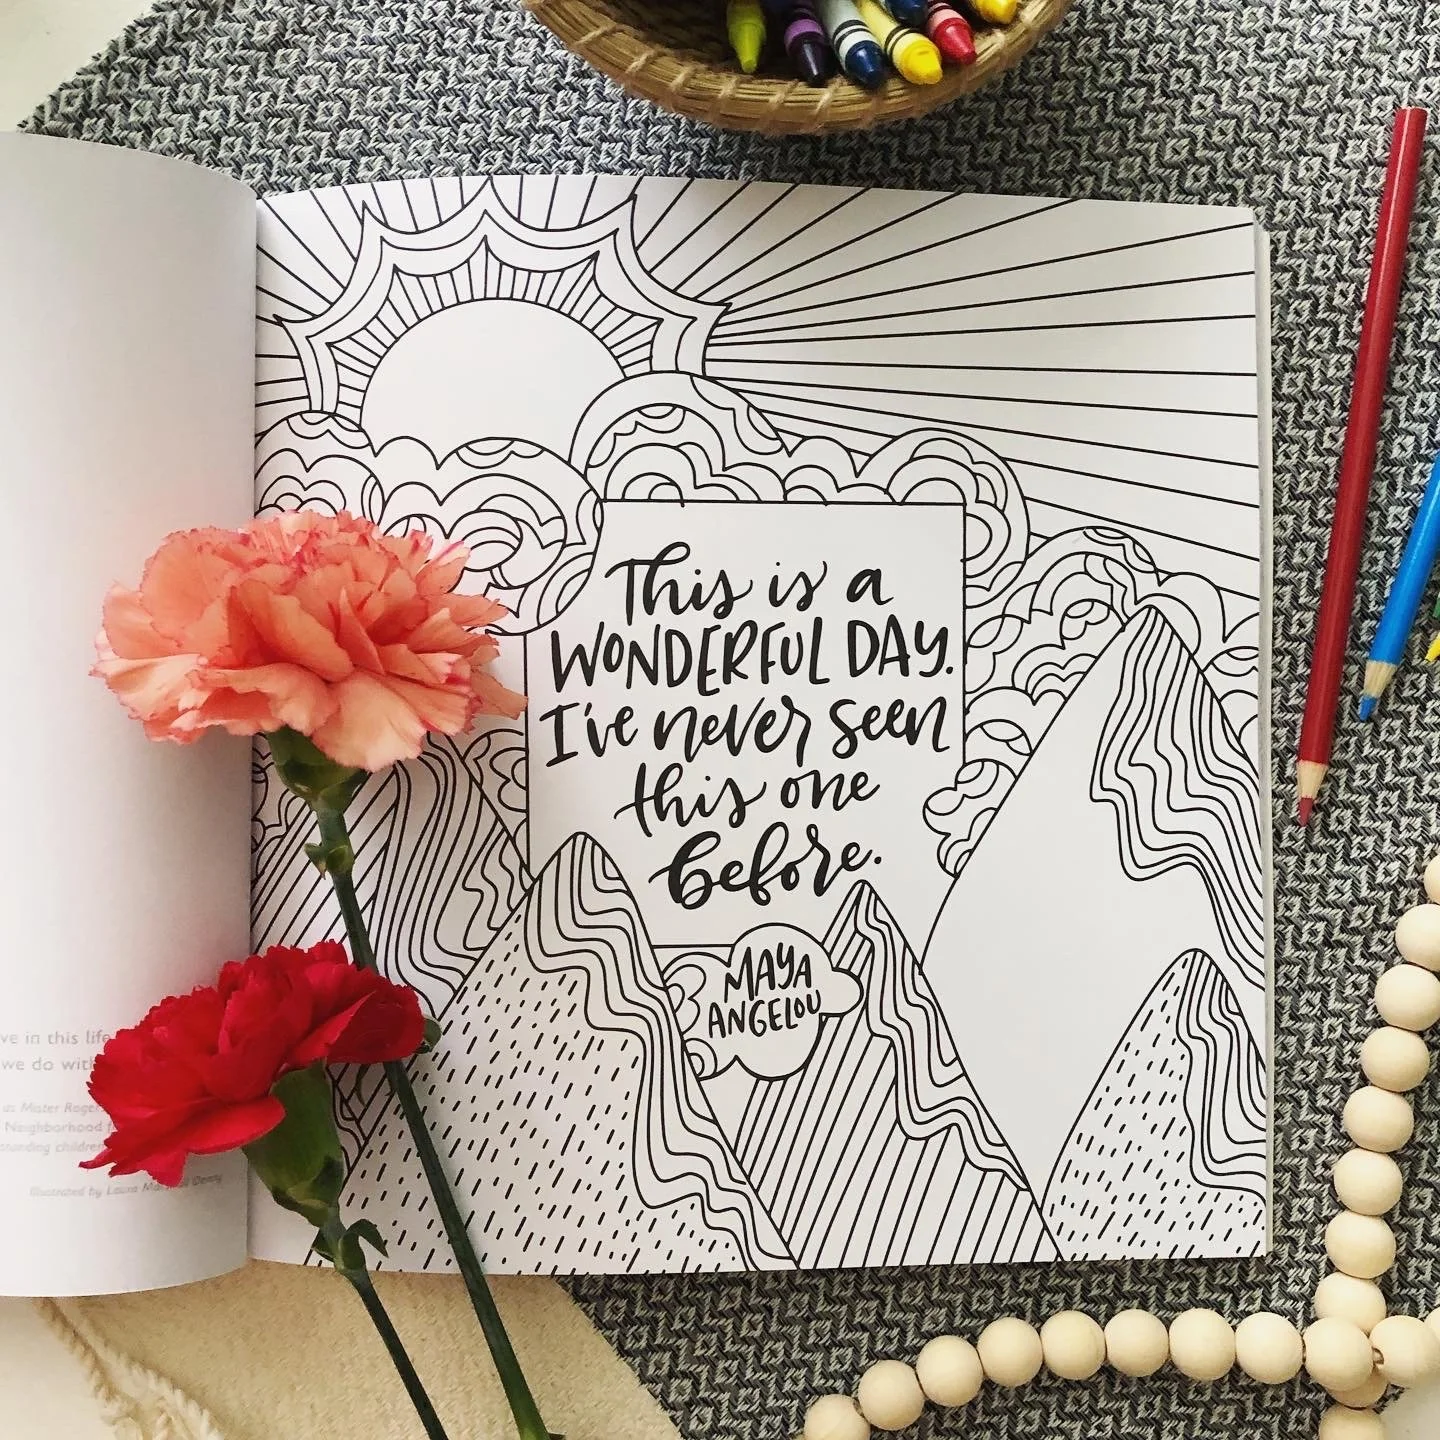 This is a
WONDERFUL DAY.
I've never seen
this one
before.
MAYA
ANGELOU
ve in this life
we do with
as Mister Rogers
Neighborhood
children
Illustrated by Laura